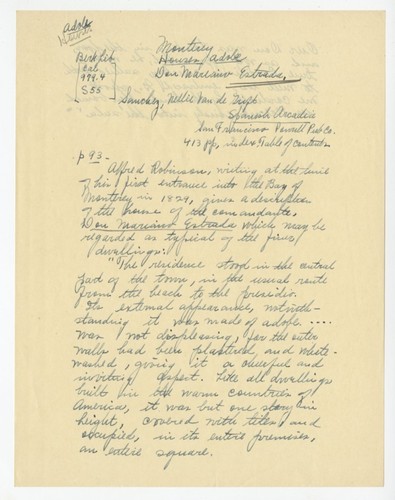 adobe
Monterey
Houses/adobe
Don Mariano Estrada,
Berkeley
Cal
979.4
S55
Sanchez, Nellie Van de Grift
Spanish Arcadia
San Francisco Powell Pub Co.
413 pp, index & Table of contents
p 93-
Alfred Robinson, writing at the time
of his first entrance into the Bay of
Monterey in 1829, gives a description
of the house of the comandante,
Don Mariano Estrada which may be
regarded as typical of the finer
dwellings:
"The residence stood in the central
part of the town, in the usual route
from the beach to the presidio.
Its external appearance, notwith-
standing it was made of adobe ....
was not displeasing, for the outer
walls had been plastered, and white-
washed, giving it a cheerful and
inviting aspect. Like all dwellings
built in the warm countries of
America, it was but one story in
height, covered with tiles, and
occupied, in its entire premises,
an entire square.